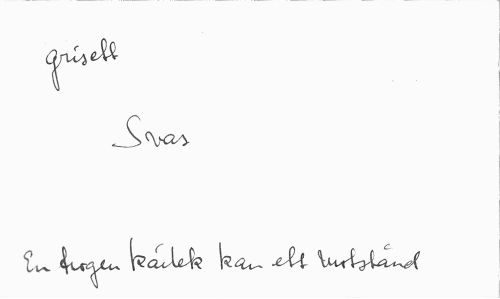 grisett
Svas
En trogen kärlek kan ett motstånd